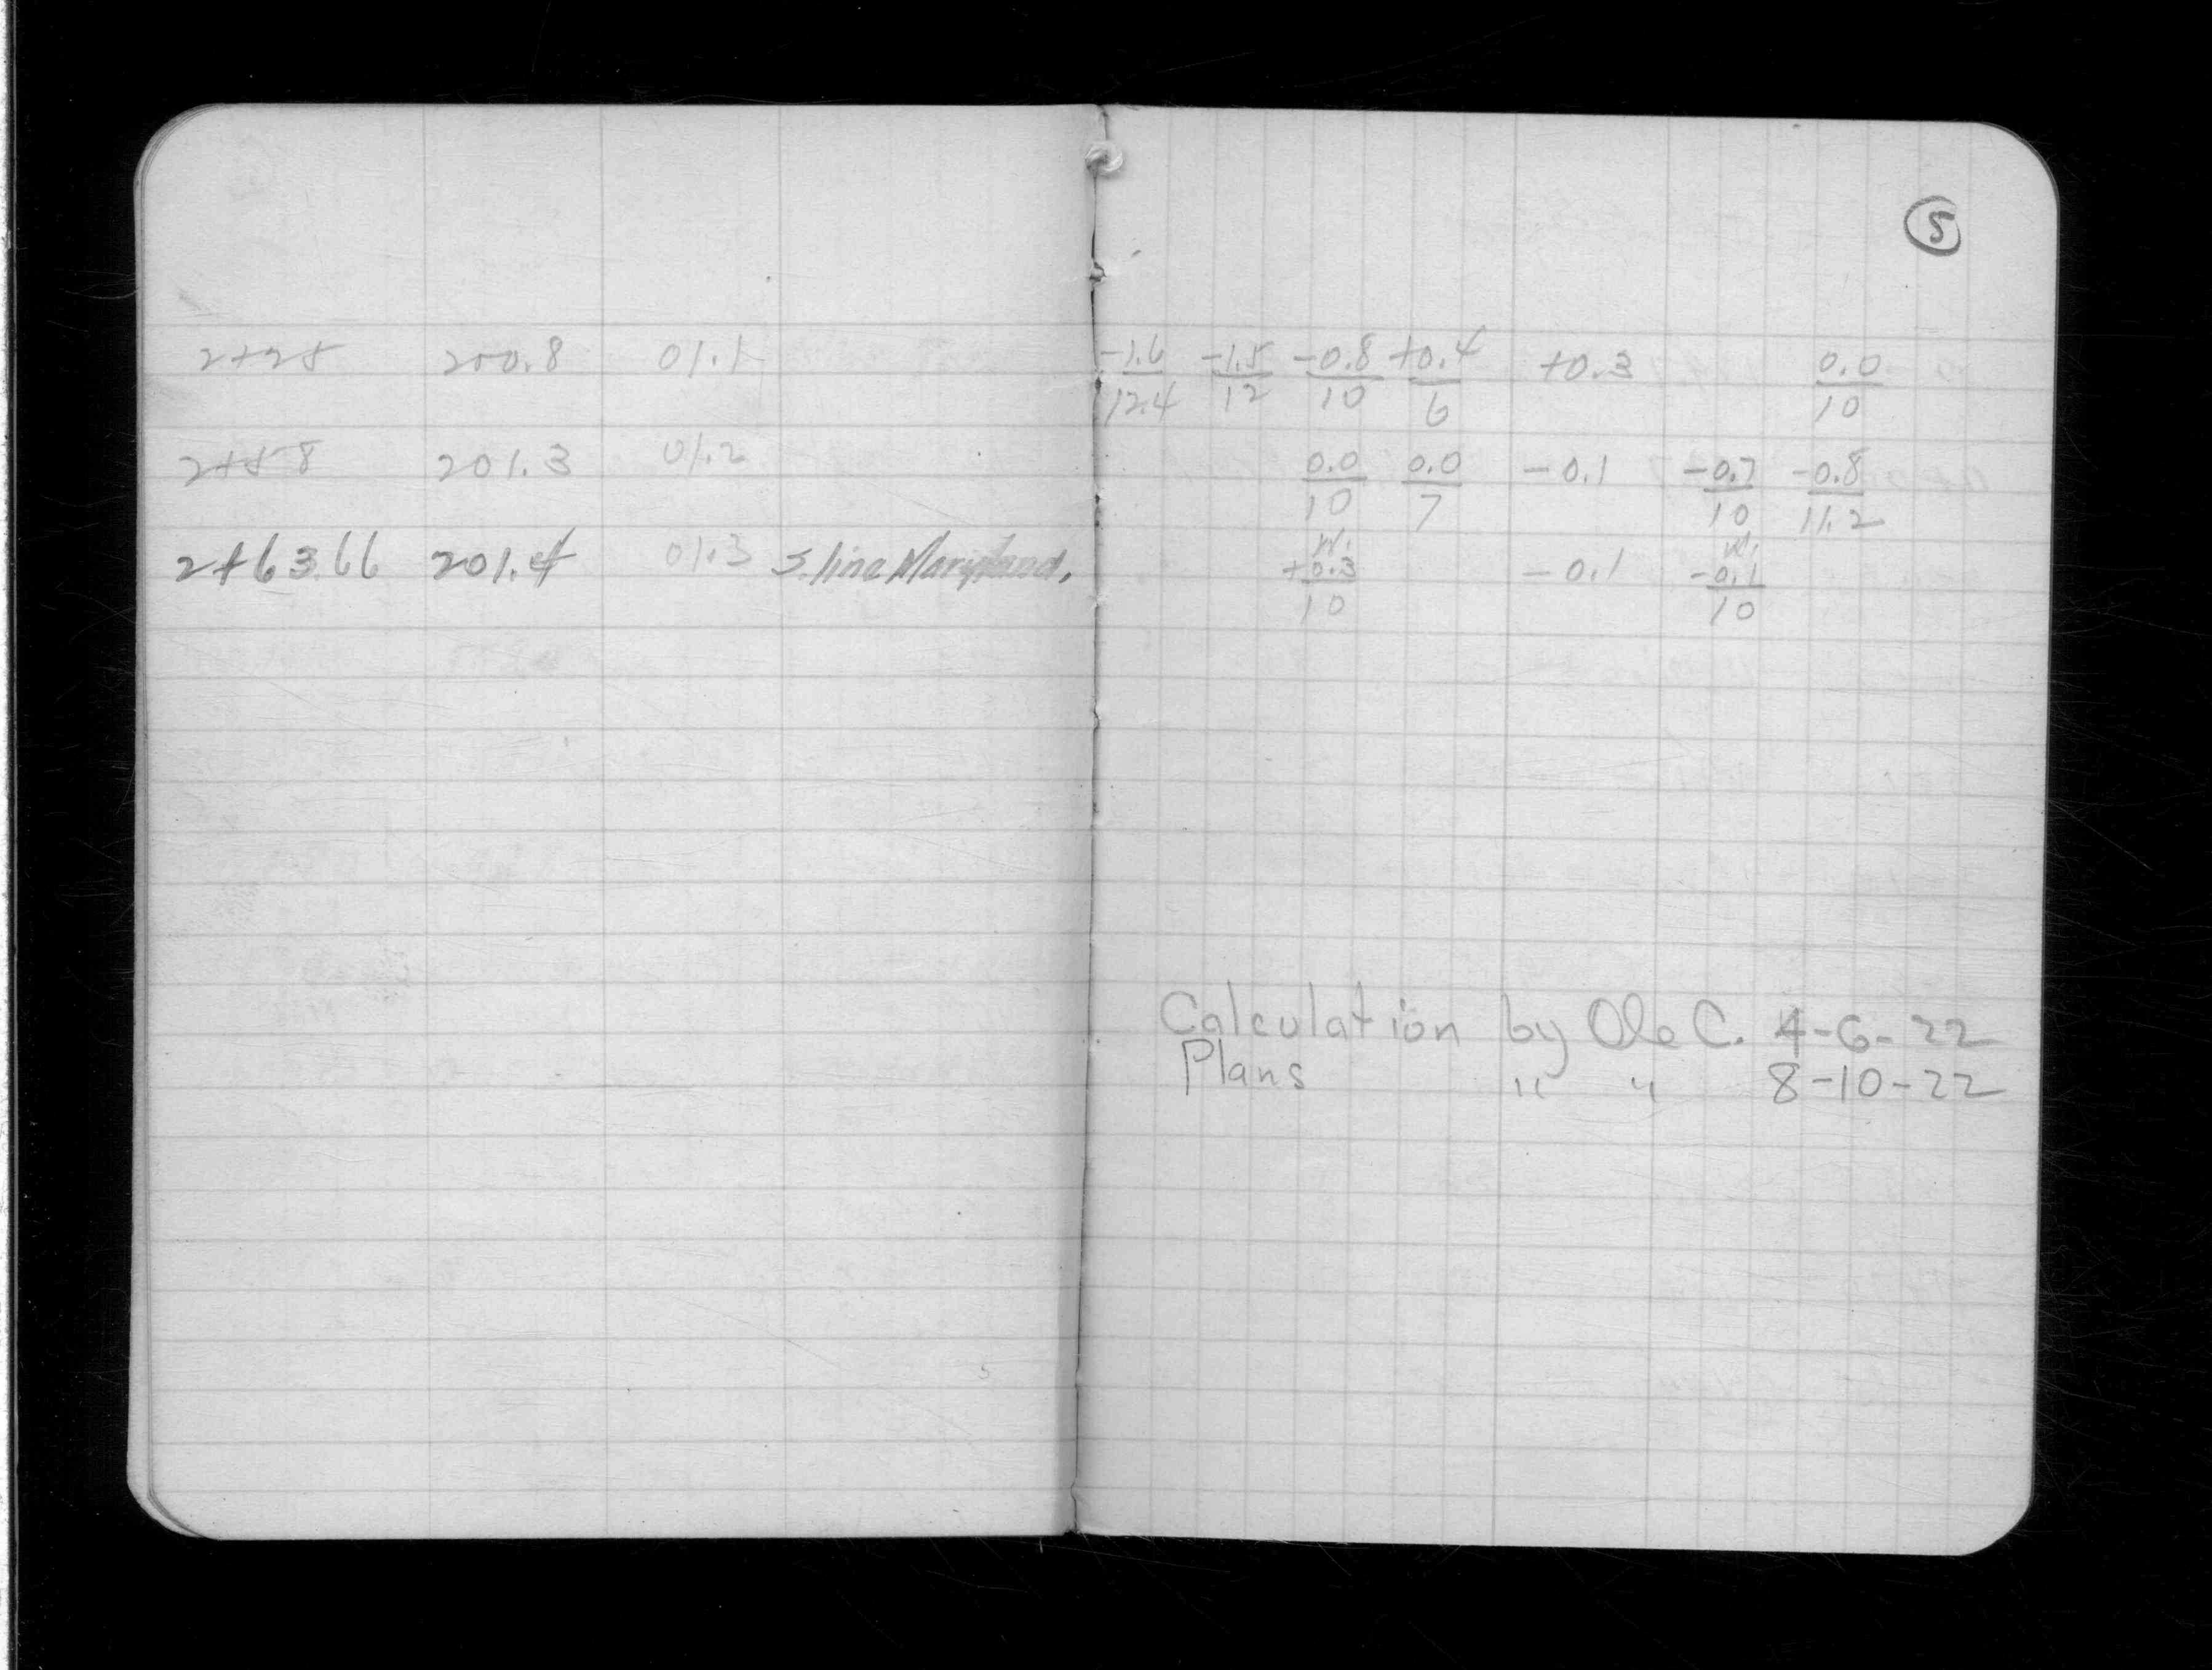 5
2+25 200.8 01.1
-1.6/12.4 -1.5/12 -0.8/10 +0.4/6 +0.3 0.0/10
2+58 201.3 01.2
0.0/10 0.0/7 -0.1 -0.7/10 -0.8/11.2
W. W.
2+63.66 201.4 01.3 S. line Maryland.
+0.3/10 -0.1 -0.1/10
Calculation by Ole C. 4-6-22
Plans " " 8-10-22